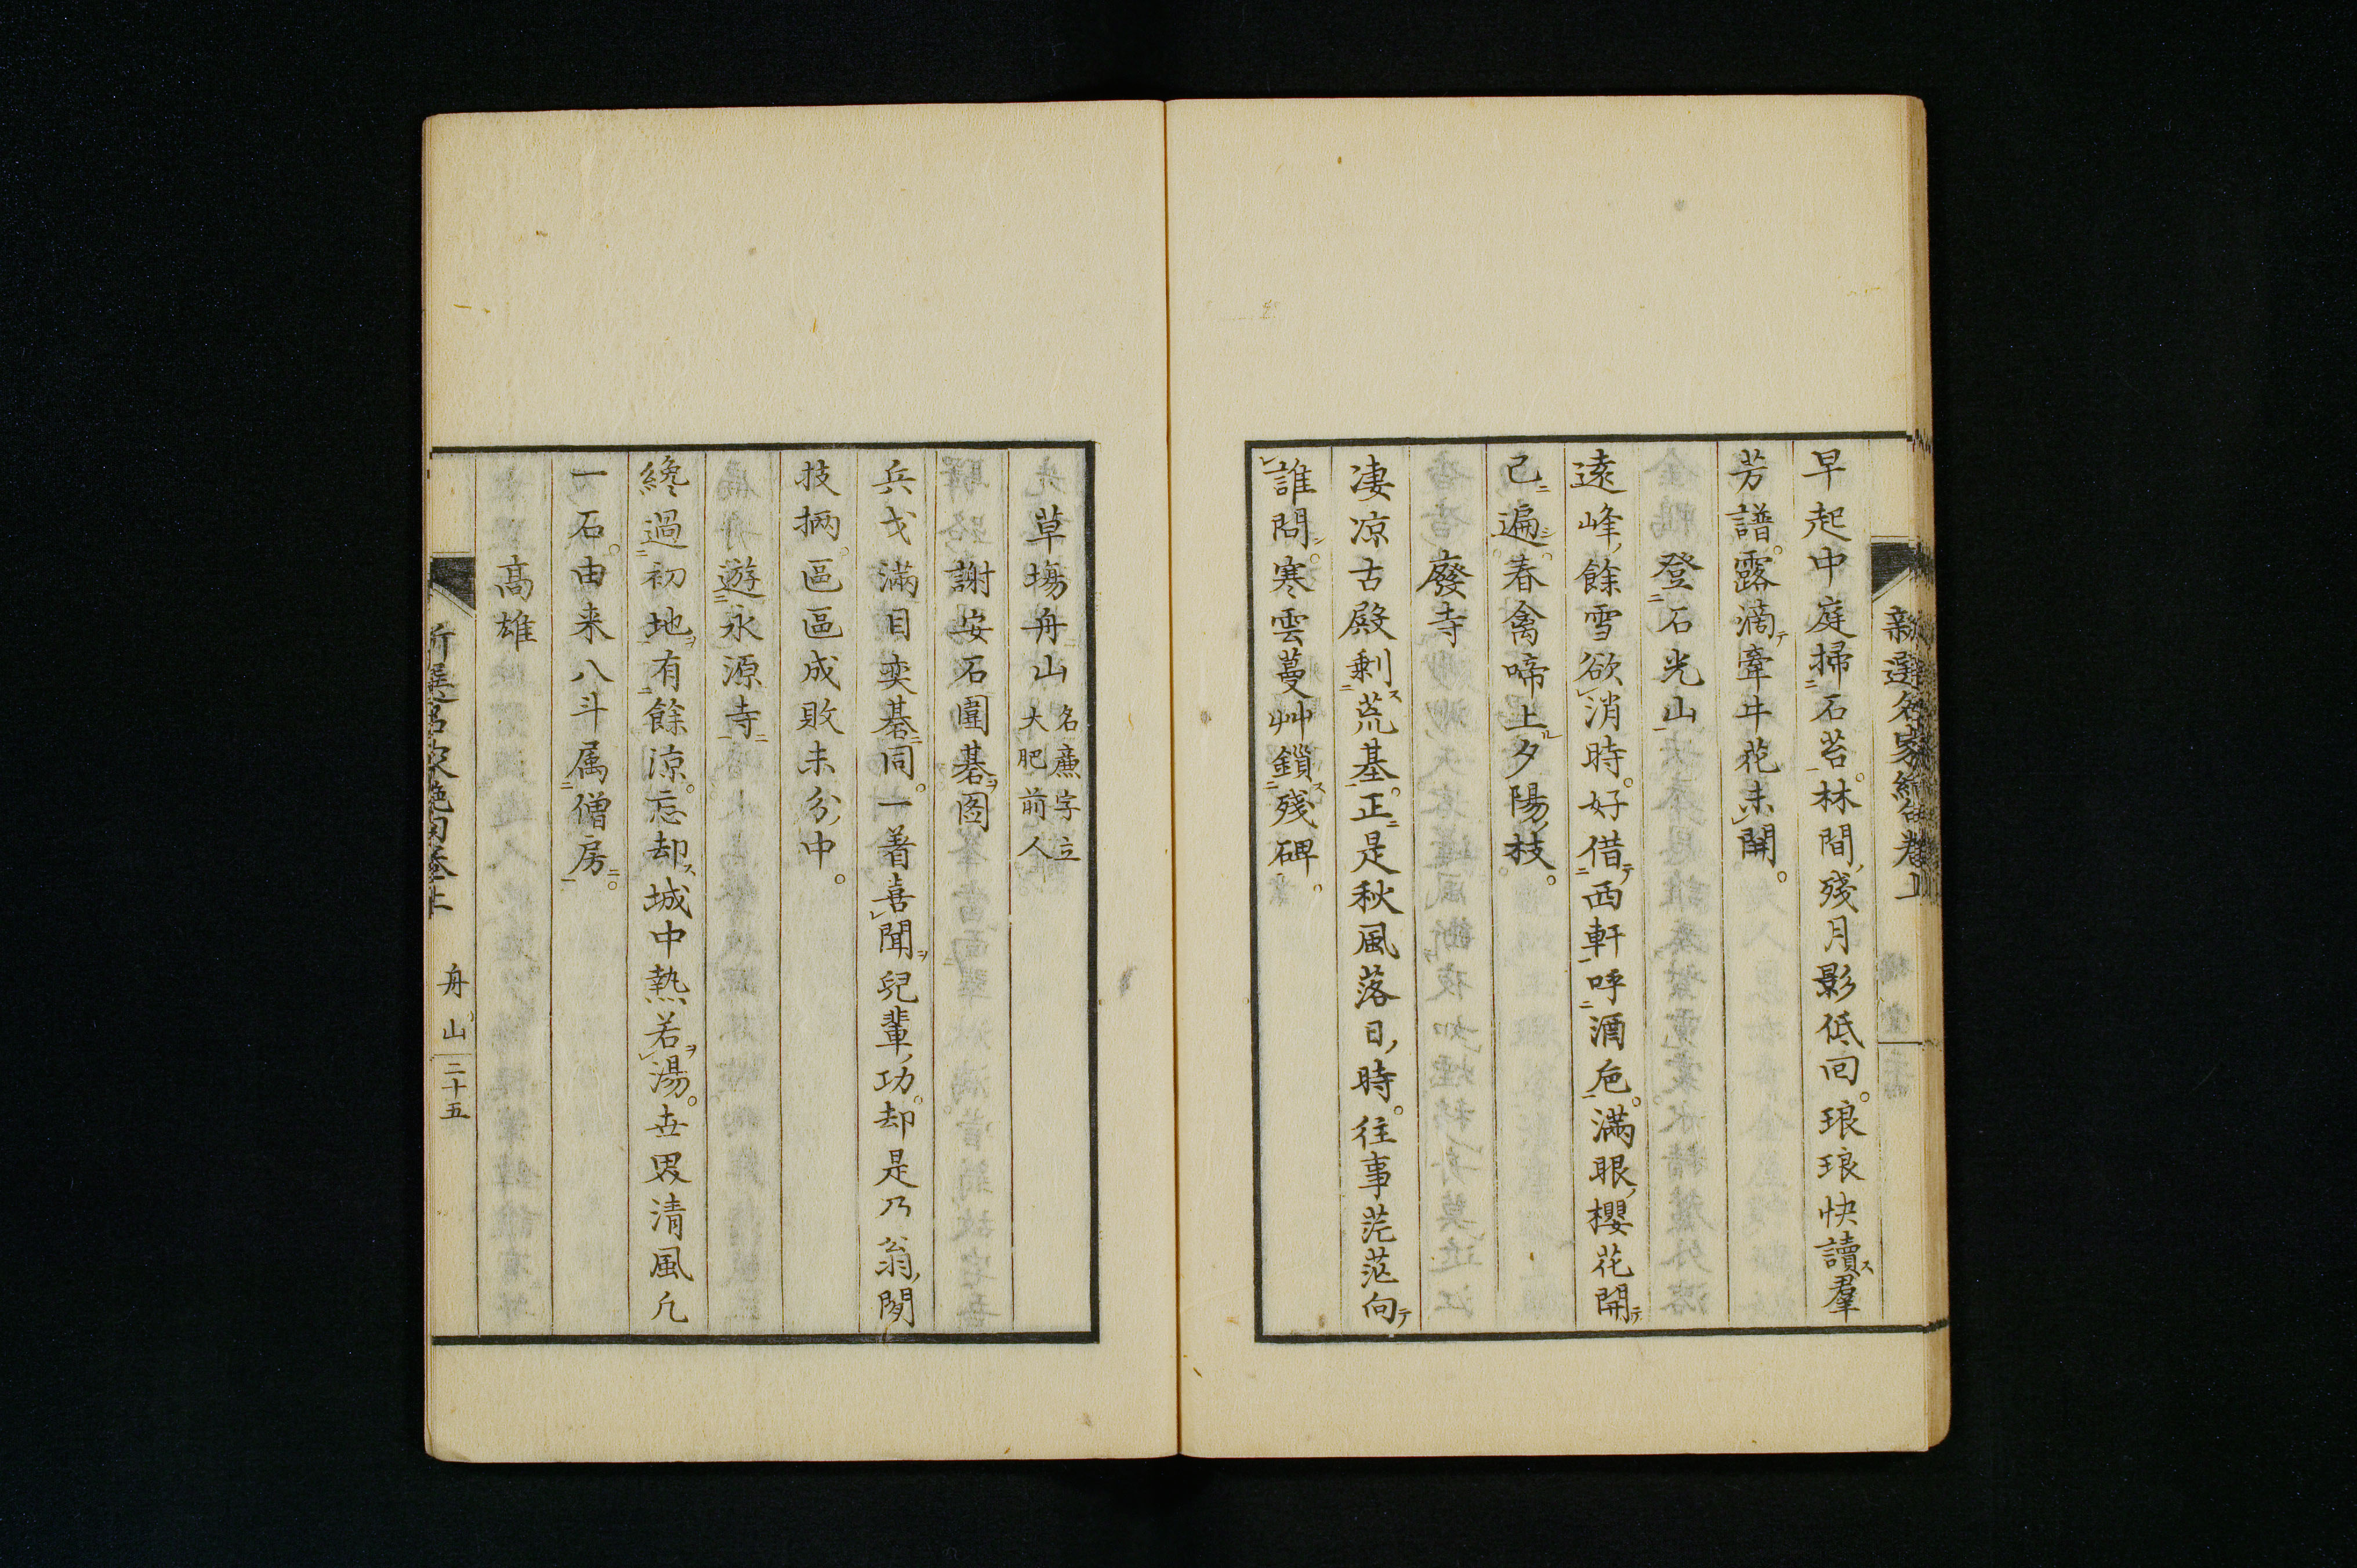 新選名家絶句卷上
早起中庭掃石苔。林間殘月影低回。琅琅快讀羣
芳譜。露滴牽牛花未開。
登石光山
遠峰餘雪欲消時。好借西軒呼酒卮。滿眼櫻花開
已遍。春禽啼上夕陽枝。
廢寺
凄凉古殿剰荒基。正是秋風落日時。往事茫茫向
誰問。寒雲蔓艸鎖殘碑。
草塲舟山 名廉字立大肥前人
謝安石圍碁圖
兵戈滿目奕碁同。一著喜聞兒輩功。却是乃翁閒
技倆。區區成敗未分中。
遊永源寺
纔過初地有餘凉。忘却城中熱若湯。世界清風凢
一石。由来八斗属僧房。
高雄
新選名家絶句卷上 舟山 二十五